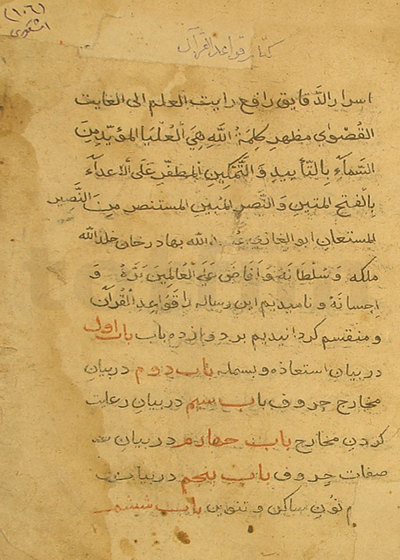 (١٠٦)
کتاب قواعد القرآن
اسرار الدَّقایق رافع رایت العلم الی الغایت
القُصْوٰی مظهرِ کلمةُ اللهِ هِیَ الْعُلْیَا المؤیّدِ مِنَ
السَّمَآءِ بِالتَّأییدِ وَالتَّمْکِینِ المظفّرِ عَلَی الاَعداۤءِ
بِالْفتحِ المتینِ وَالنَّصرِ المُبینِ المستنصرِ مِنَ النَّصیرِ
المستعانِ ابوالغازی الله بهادر خان خلد الله
ملکه وَسُلْطَانَهُ وَاَفَاضَ عَلَی الْعَالَمِینَ بَرَّهُ وَ
اِحسانَهُ و نامیدیم این رساله را قَوَاعِدِ القُرآن
و منقسم کردانیدیم بر دوازده باب باب اول
در بیانِ استعاذه و بسمله باب دوم در بیانِ
مخارج حروف باب سیم در بیان رعایت
کردنِ مخارج باب چهارم در بیانِ
صفات حروف باب پنجم در بیان
نُونِ ساکن و تنوین باب ششم